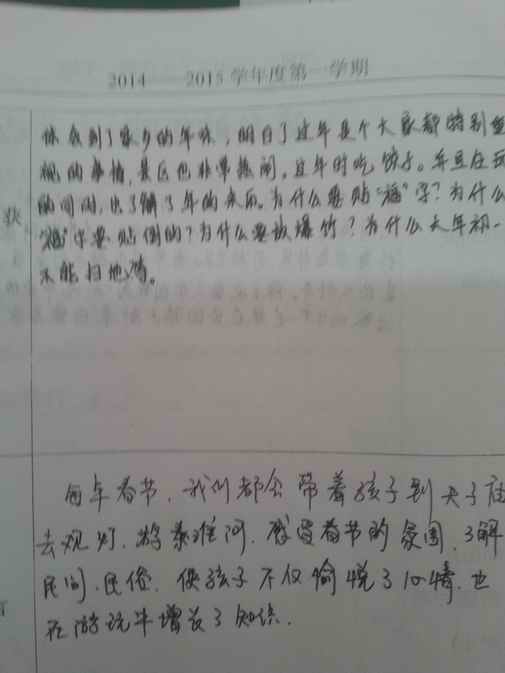 2014——2015学年度第一学期
体会到了家乡的年味,明白了过年是个大家都特别重
视的事情,景区也非常热闹。过年时吃饺子。并且在玩
的同时,也了解了年的来历。为什么要贴“福”字?为什么
获
“福”字要贴倒的?为什么要放爆竹?为什么大年初一
不能扫地等。
每年春节,我们都会带着孩子到夫子庙
去观灯,游秦淮河,感受春节的氛围,了解
民间、民俗,使孩子不仅愉悦了心情,也
在游玩中增长了知识.